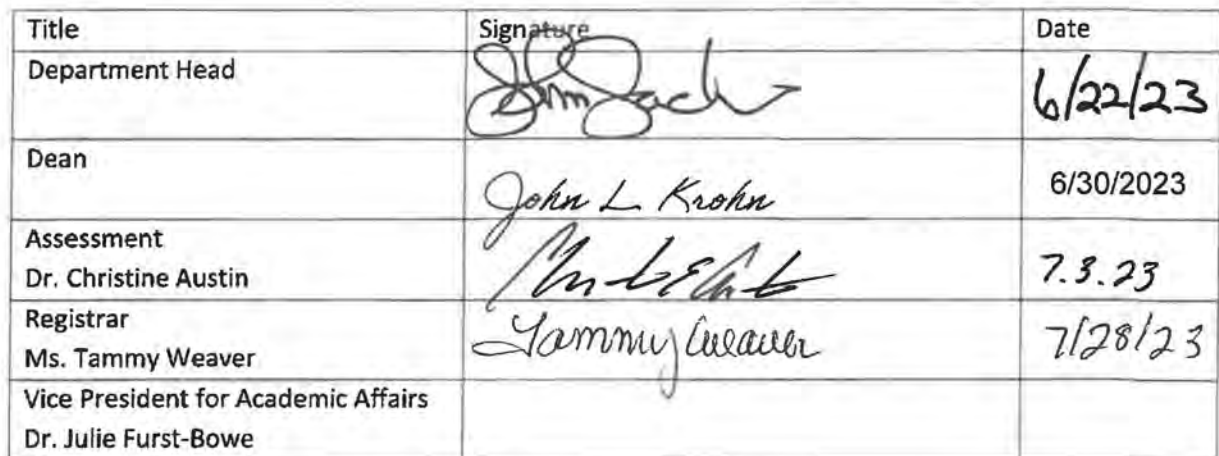 Title Signature Date
Department Head 6/22/23
Dean John L. Krohn 6/30/2023
Assessment
Dr. Christine Austin 7.3.23
Registrar
Ms. Tammy Weaver Tammy Weaver 7/28/23
Vice President for Academic Affairs
Dr. Julie Furst-Bowe